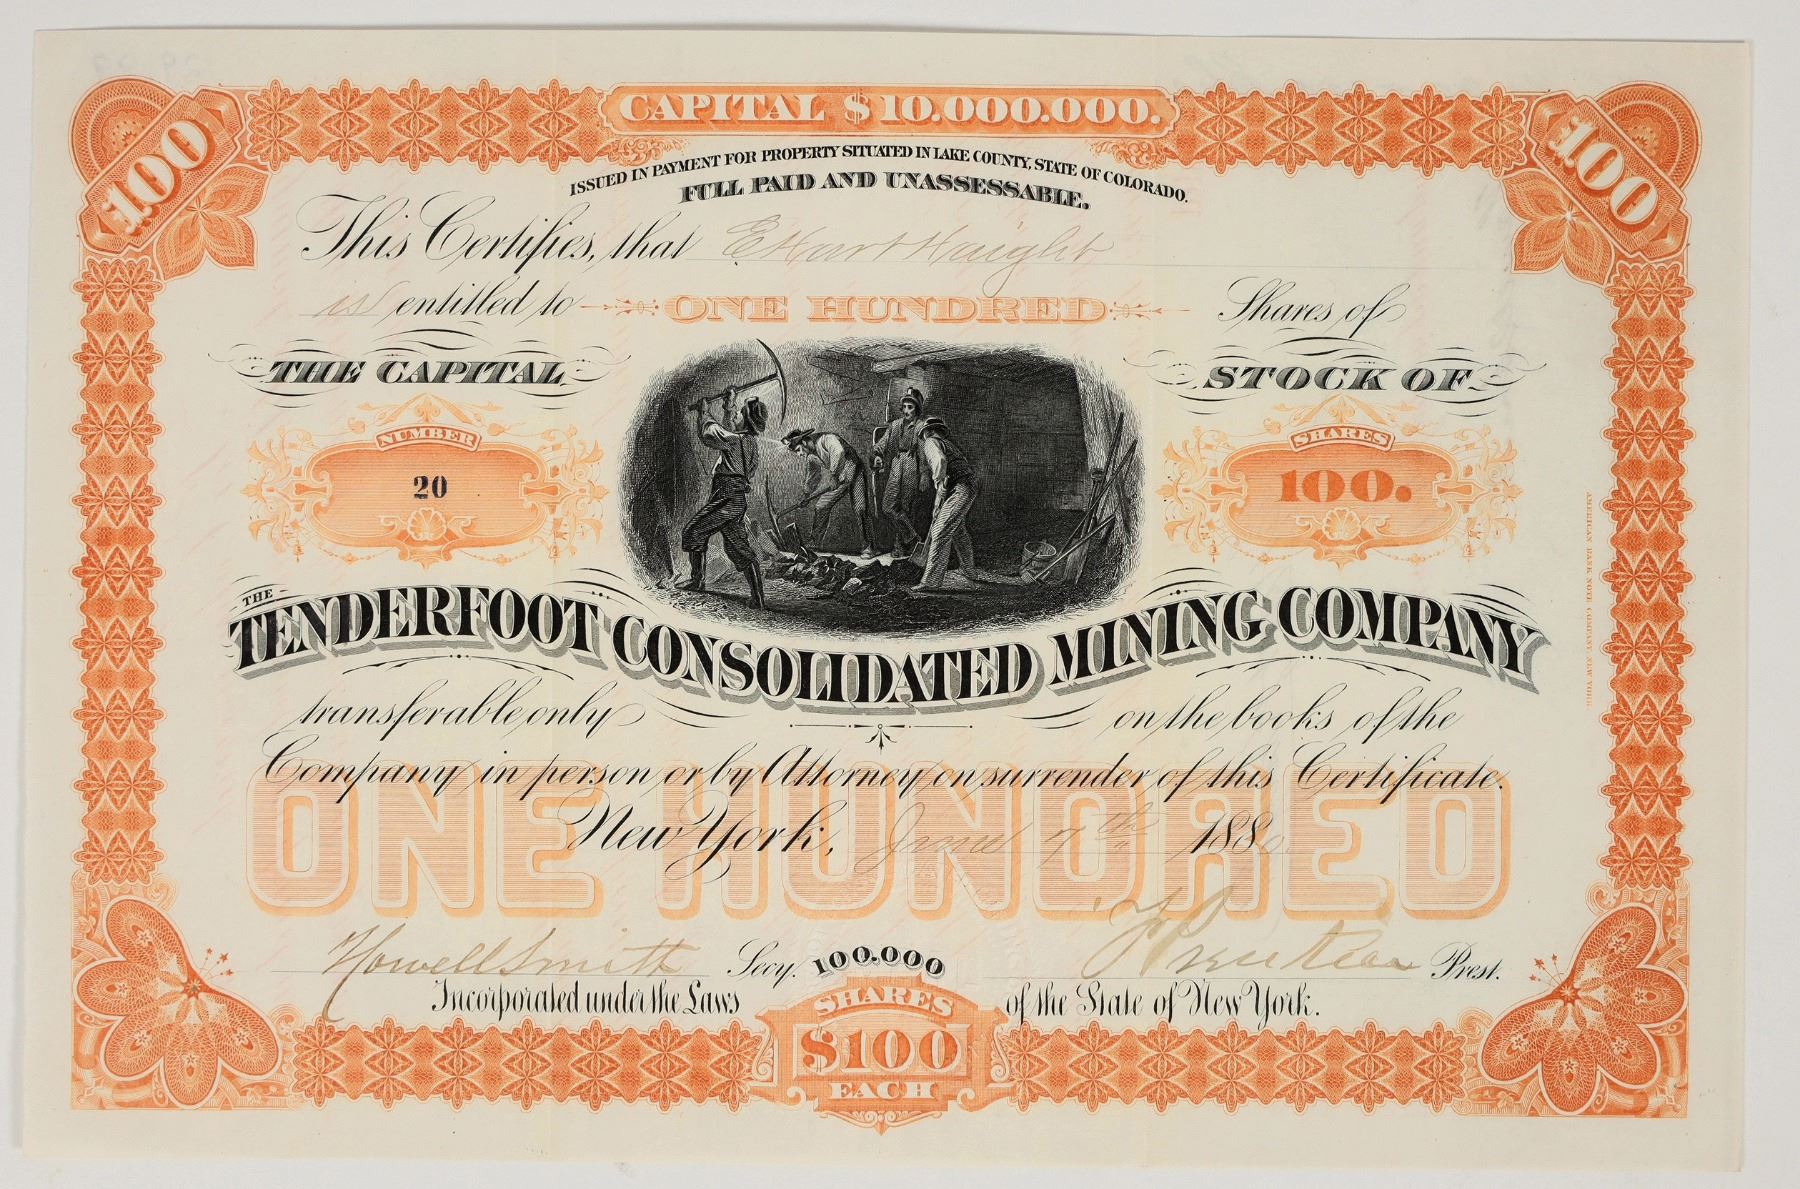 CAPITAL $10.000.000.
100
100
ISSUED IN PAYMENT FOR PROPERTY SITUATED IN LAKE COUNTY, STATE OF COLORADO.
FULL PAID AND UNASSESSABLE.
This Certifies, that E Hart Haight
is entitled to ONE HUNDRED Shares of
THE CAPITAL STOCK OF
NUMBER
20
SHARES
100.
THE
TENDERFOOT CONSOLIDATED MINING COMPANY
transferable only on the books of the
Company in person or by Attorney on surrender of this Certificate.
ONE HUNDRED
New York, June 7th 1880
Howell Smith Secy. Prest.
100.000
SHARES
$100
EACH
Incorporated under the Laws of the State of New York.
AMERICAN BANK NOTE COMPANY, NEW YORK